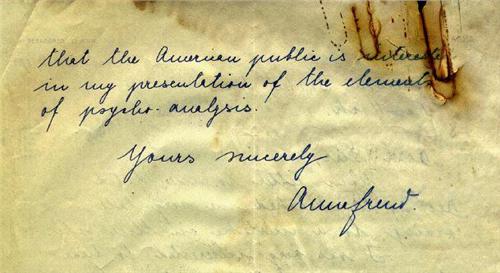 that the American public is intereste
in my presentation of the elements
of psycho-analysis.
Yours sincerely
Anna Freud.